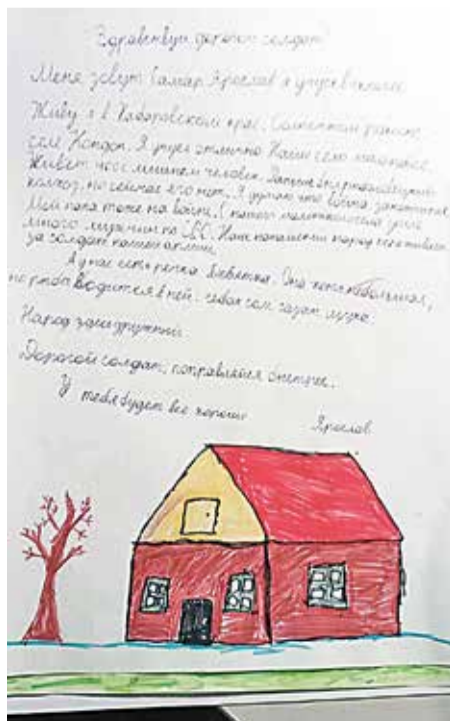 Здравствуй дорогой солдат!
Меня зовут Самар Ярослав я учусь в школе
Живу я в Хабаровском крае, Солнечном районе
селе Кондон. Я учусь отлично. Наше село маленькое.
Живет человек. Раньше был рыболовецкий
колхоз, но сейчас его нет. Я думаю что война закончится.
Мой папа тоже на войне. С нашего маленького села ушло
много мужчин на СВО. Наш народ переживает
за солдат нашей армии.
А у нас есть речка Девятка. Она хоть небольшая,
но рыба водится в ней.
Народ здесь дружный.
Дорогой солдат, поправляйся быстрее.
У тебя будет все хорошо
Ярослав